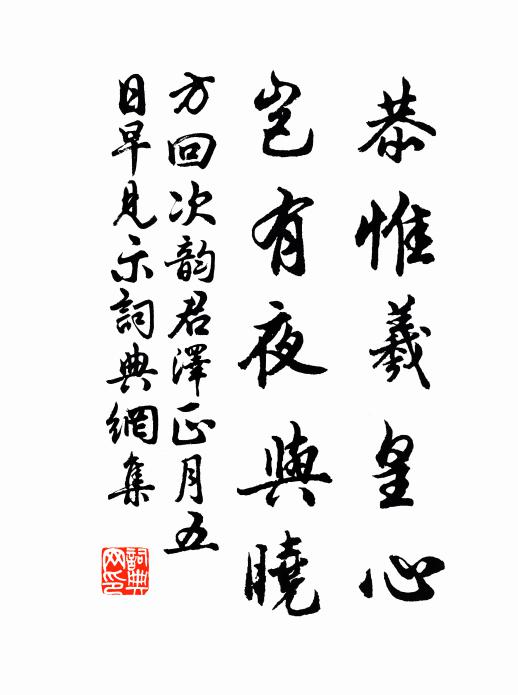 恭惟羲皇心
豈有夜與曉
方回次韵君澤正月五
日早見示詞典網集
詞典网印